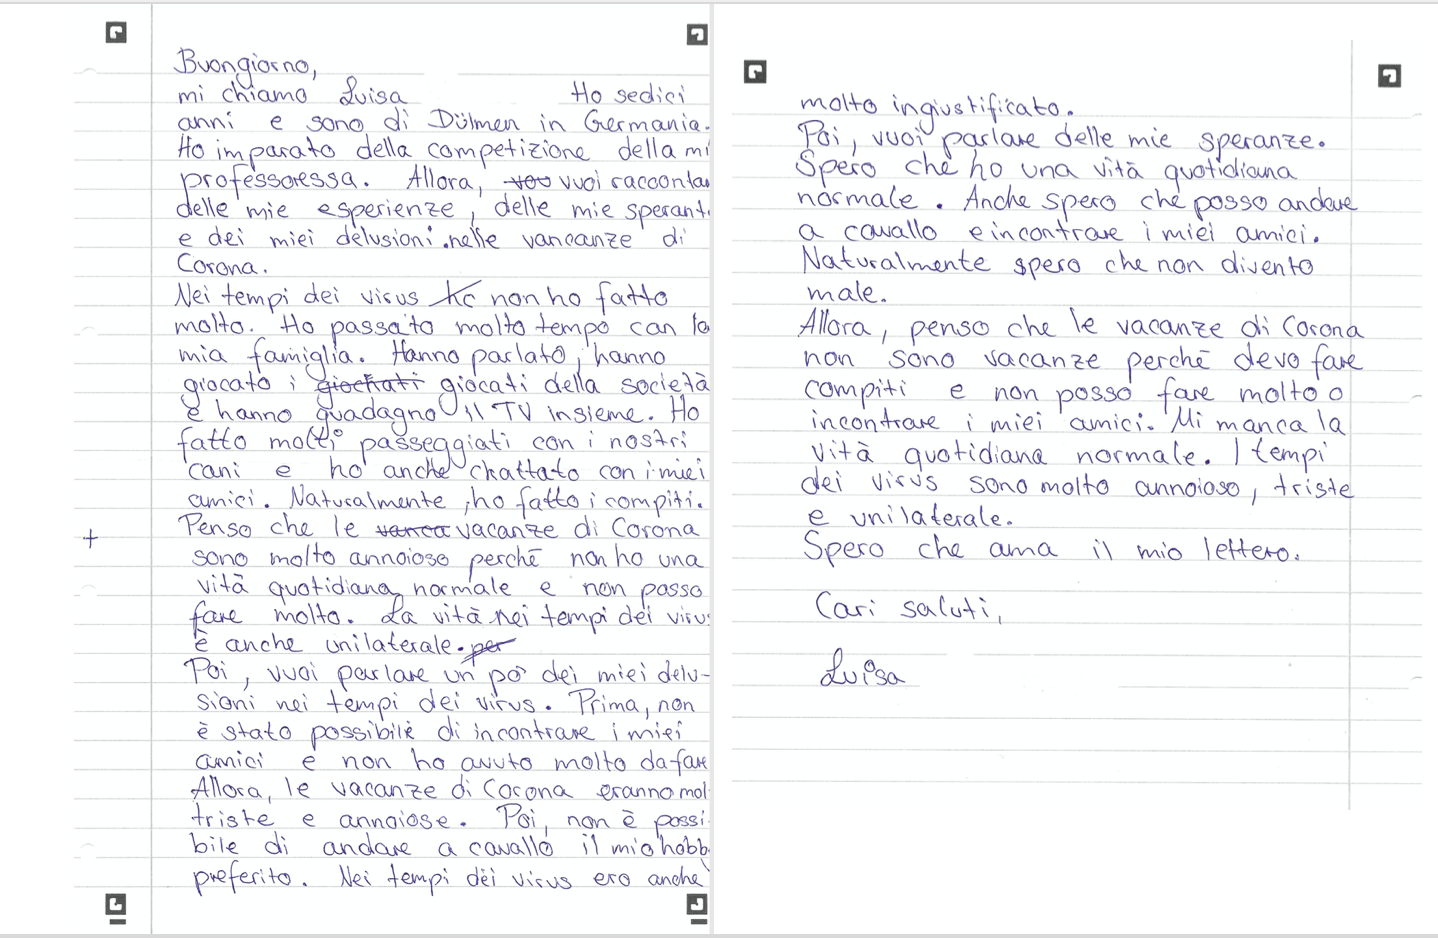 Buongiorno,
mi chiamo Luisa Ho sedici
anni e sono di Dülmen in Germania.
Ho imparato della competizione della mi
professoressa. Allora, vuoi raccontar
delle mie esperienze, delle mie sperant
e dei miei delusioni nelle vancanze di
Corona.
Nei tempi dei virus non ho fatto
molto. Ho passato molto tempo con la
mia famiglia. Hanno parlato, hanno
giocato i giochati giocati della società
e hanno guadagno il TV insieme. Ho
fatto molti passeggiati con i nostri
cani e ho anche chattato con i miei
amici. Naturalmente, ho fatto i compiti.
+ Penso che le vanca vacanze di Corona
sono molto annoioso perchē non ho una
vità quotidiana normale e non posso
fare molto. La vità nei tempi dei virus
è anche unilaterale. per
Poi, vuoi parlare un po dei miei delu-
sioni nei tempi dei virus. Prima, non
è stato possibile di incontrare i miei
amici e non ho avuto molto da fare
Allora, le vacanze di Corona eranno mol
triste e annoiose. Poi, non è possi
bile di andare a cavallo il mio hobb
preferito. Nei tempi dei virus ero anche
molto ingiustificato.
Poi, vuoi parlare delle mie speranze.
Spero che ho una vità quotidiana
normale. Anche spero che posso andare
a cavallo e incontrare i miei amici.
Naturalmente spero che non divento
male.
Allora, penso che le vacanze di Corona
non sono vacanze perchē devo fare
compiti e non posso fare molto o
incontrare i miei amici. Mi manca la
vità quotidiana normale. I tempi
dei virus sono molto annoioso, triste
e unilaterale.
Spero che ama il mio lettero.
Cari saluti,
Luisa